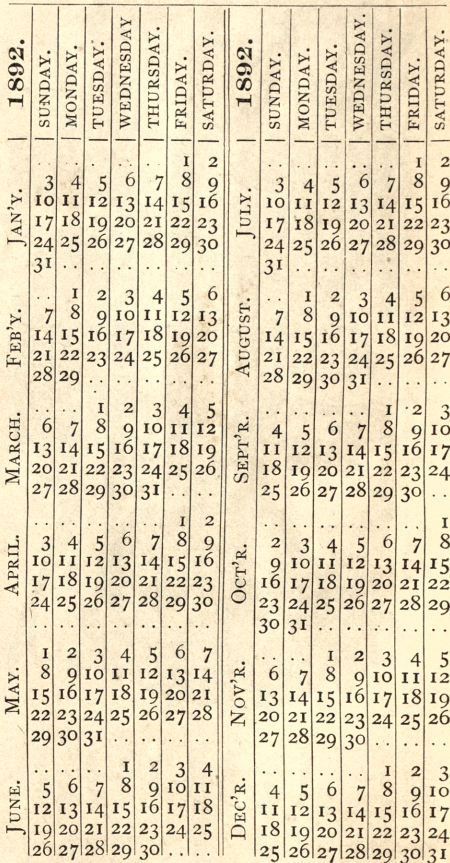 1892.
SUNDAY. MONDAY. TUESDAY. WEDNESDAY THURSDAY. FRIDAY. SATURDAY.
JAN'Y.
.. .. .. .. .. 1 2
3 4 5 6 7 8 9
10 11 12 13 14 15 16
17 18 19 20 21 22 23
24 25 26 27 28 29 30
31 .. .. .. .. .. ..
FEB'Y.
.. 1 2 3 4 5 6
7 8 9 10 11 12 13
14 15 16 17 18 19 20
21 22 23 24 25 26 27
28 29 .. .. .. .. ..
MARCH.
.. .. 1 2 3 4 5
6 7 8 9 10 11 12
13 14 15 16 17 18 19
20 21 22 23 24 25 26
27 28 29 30 31 .. ..
APRIL.
.. .. .. .. .. 1 2
3 4 5 6 7 8 9
10 11 12 13 14 15 16
17 18 19 20 21 22 23
24 25 26 27 28 29 30
.. .. .. .. .. .. ..
MAY.
1 2 3 4 5 6 7
8 9 10 11 12 13 14
15 16 17 18 19 20 21
22 23 24 25 26 27 28
29 30 31 .. .. .. ..
JUNE.
.. .. .. 1 2 3 4
5 6 7 8 9 10 11
12 13 14 15 16 17 18
19 20 21 22 23 24 25
26 27 28 29 30 .. ..
1892.
SUNDAY. MONDAY. TUESDAY. WEDNESDAY. THURSDAY. FRIDAY. SATURDAY.
JULY.
.. .. .. .. .. 1 2
3 4 5 6 7 8 9
10 11 12 13 14 15 16
17 18 19 20 21 22 23
24 25 26 27 28 29 30
31 .. .. .. .. .. ..
AUGUST.
.. 1 2 3 4 5 6
7 8 9 10 11 12 13
14 15 16 17 18 19 20
21 22 23 24 25 26 27
28 29 30 31 .. .. ..
SEPT'R.
.. .. .. .. 1 2 3
4 5 6 7 8 9 10
11 12 13 14 15 16 17
18 19 20 21 22 23 24
25 26 27 28 29 30 ..
OCT'R.
.. .. .. .. .. .. 1
2 3 4 5 6 7 8
9 10 11 12 13 14 15
16 17 18 19 20 21 22
23 24 25 26 27 28 29
30 31 .. .. .. .. ..
NOV'R.
.. .. 1 2 3 4 5
6 7 8 9 10 11 12
13 14 15 16 17 18 19
20 21 22 23 24 25 26
27 28 29 30 .. .. ..
DEC'R.
.. .. .. .. 1 2 3
4 5 6 7 8 9 10
11 12 13 14 15 16 17
18 19 20 21 22 23 24
25 26 27 28 29 30 31